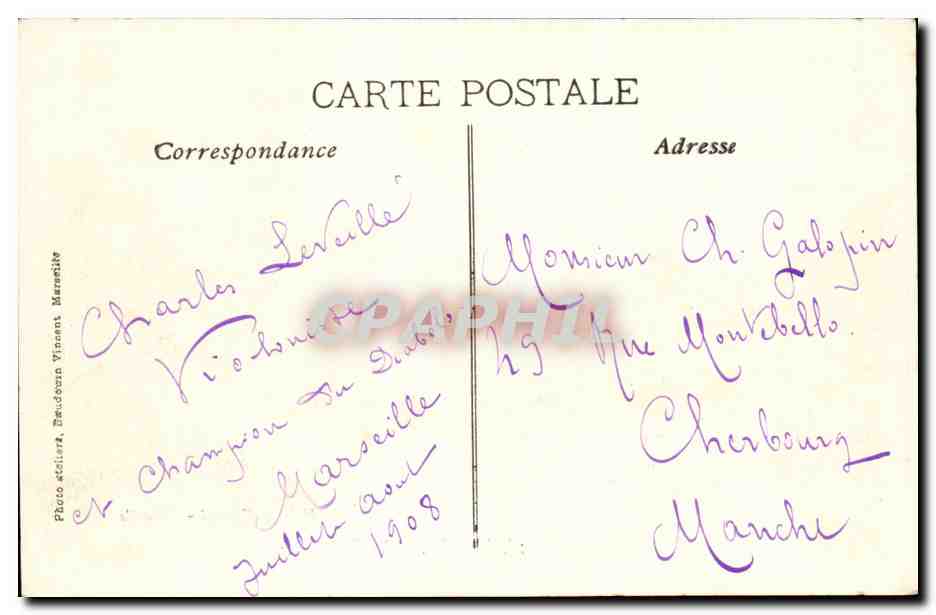 CARTE POSTALE
Correspondance
Charles Leveillé
Violoniste
et Champion du Diabolo
Marseille
Juillet Aout
1908
Adresse
Monsieur Ch. Galopin
49 Rue Montebello.
Cherbourg
Manche
Photo ateliers, Baudouin Vincent Marseille
CPAPHIL